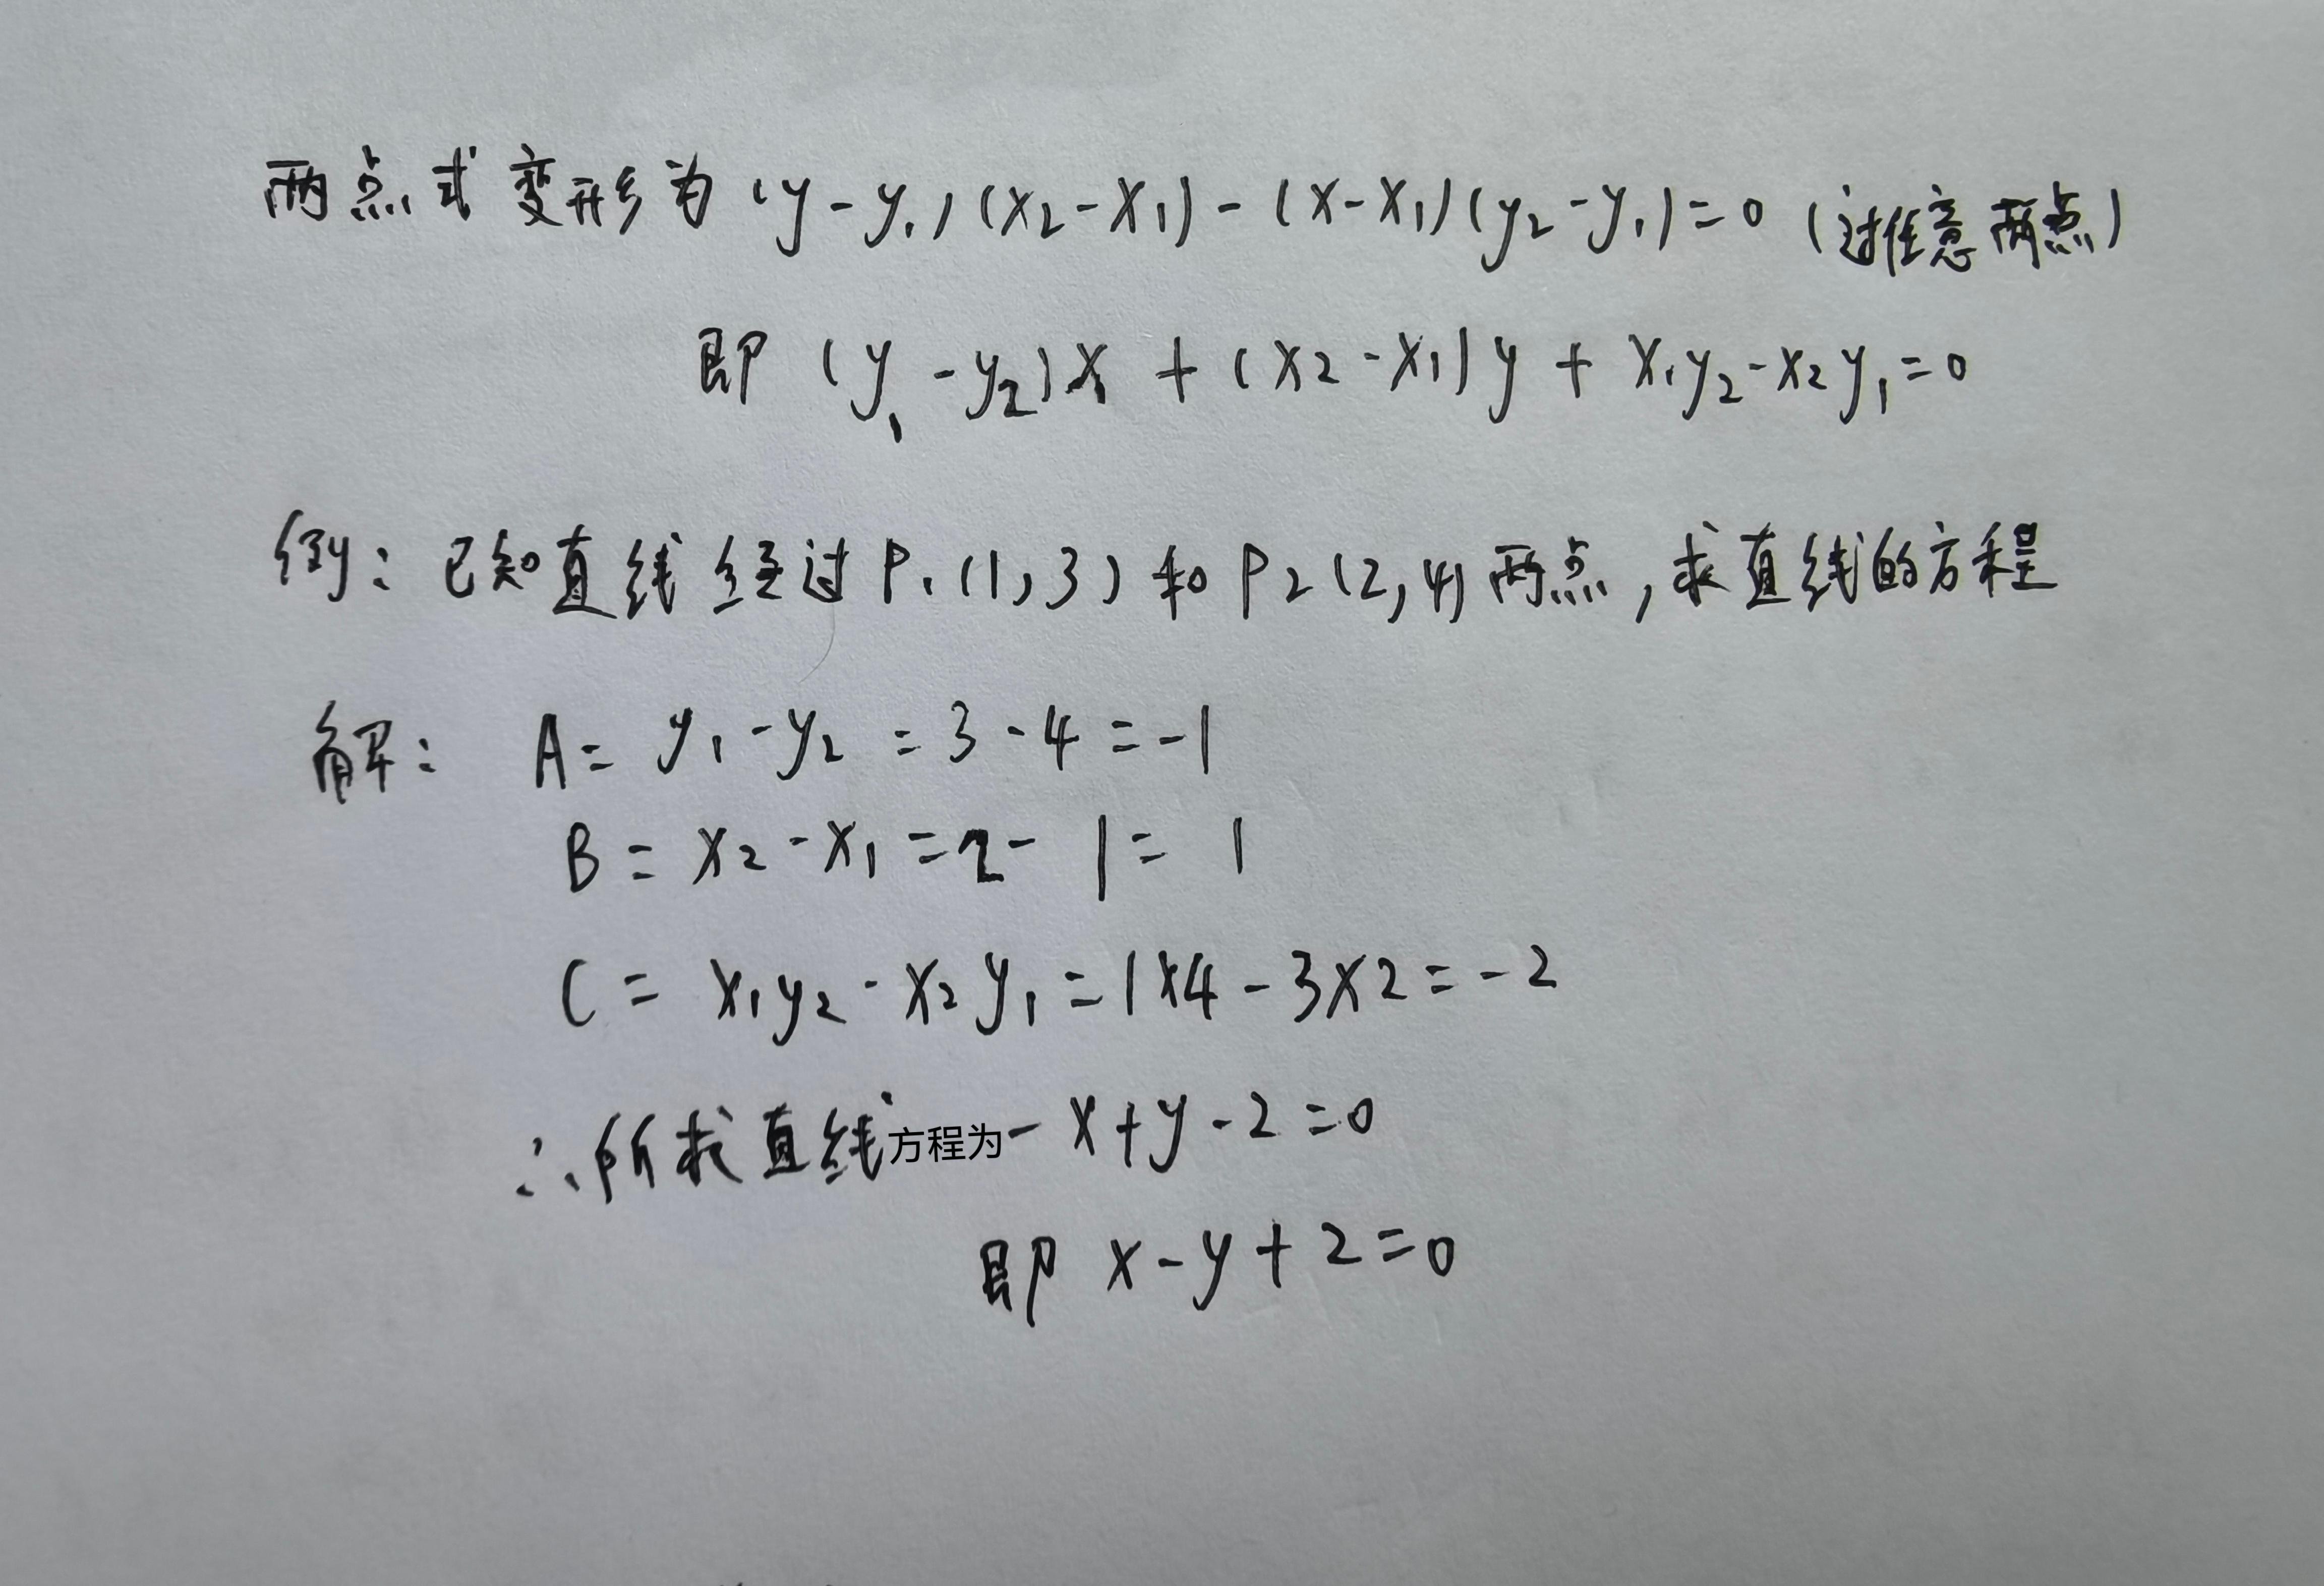 两点式变形为 (y-y₁)(x₂-x₁)-(x-x₁)(y₂-y₁)=0 (过任意两点)
即 (y₁-y₂)x+(x₂-x₁)y+x₁y₂-x₂y₁=0
例：已知直线经过P₁(1,3)和P₂(2,4)两点,求直线的方程
解： A=y₁-y₂=3-4=-1
B=x₂-x₁=2-1=1
C=x₁y₂-x₂y₁=1×4-3×2=-2
∴所求直线方程为-x+y-2=0
即 x-y+2=0